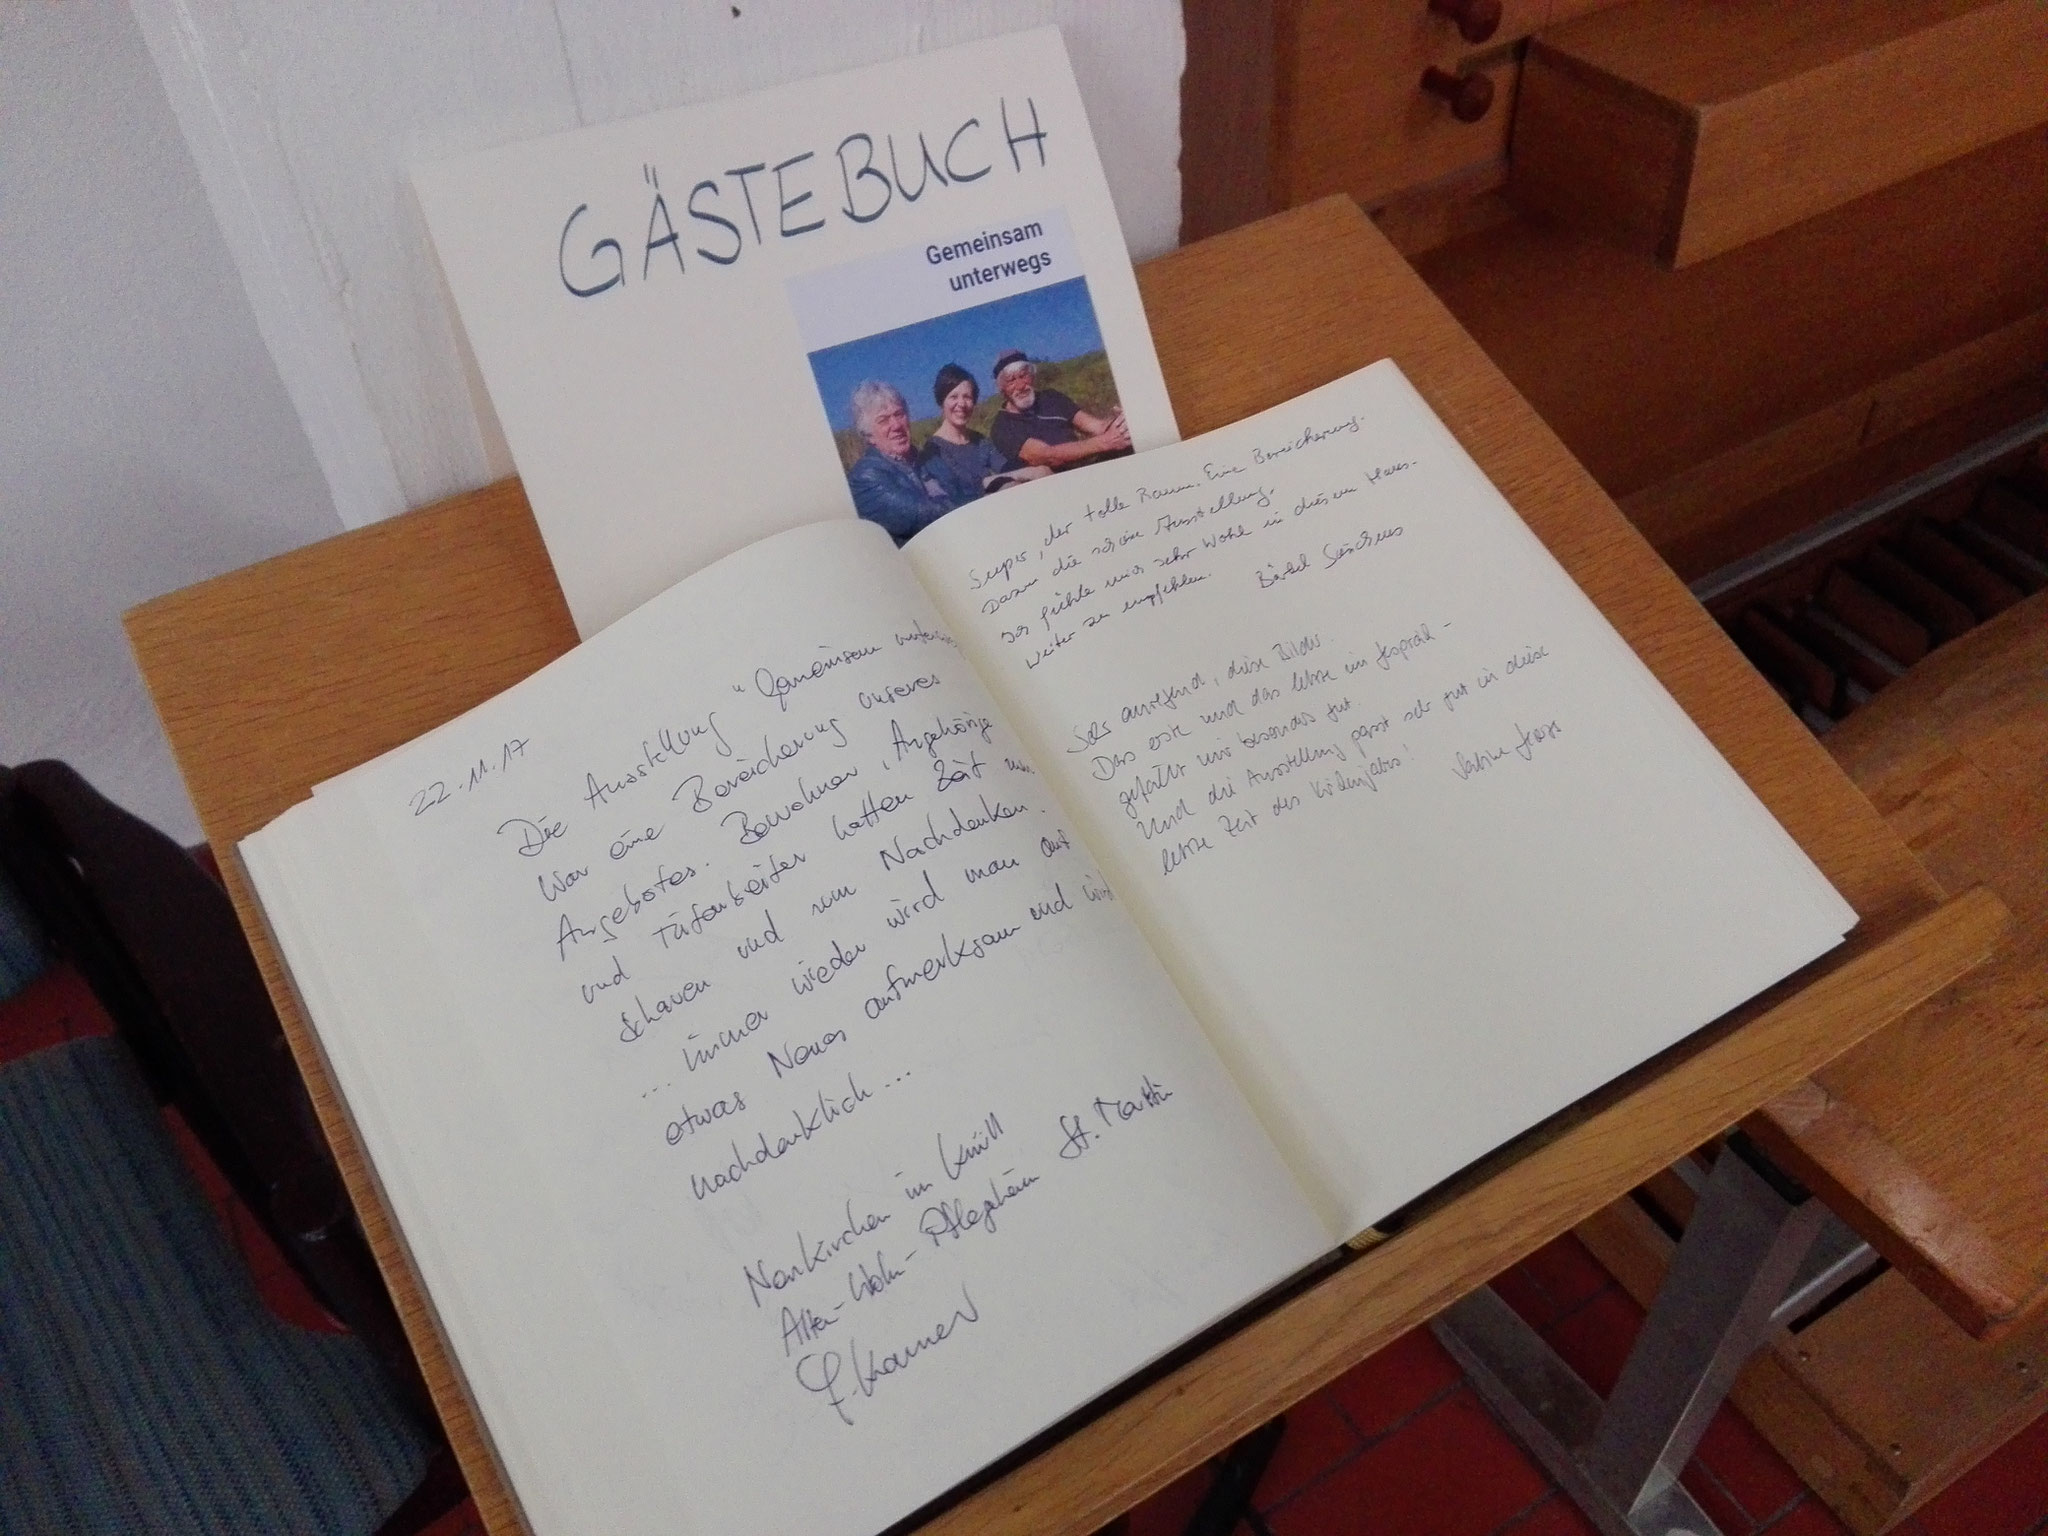 GÄSTEBUCH
Gemeinsam
unterwegs
22.11.17
Die Ausstellung "Gemeinsam
war eine Bereicherung unseres
Angebotes. Bewohner, Angehörige
und Mitarbeiter hatten Zeit zum
Schauen und zum Nachdenken.
... immer wieder wird man auf
etwas Neues aufmerksam und wird
nachdenklich ...
Neukirchen im Knüll
Alten- Wohn- Pflegeheim St. Martin
Super, der tolle Raum. Eine Bereicherung.
Dazu die schöne Ausstellung.
Ich fühlte mich sehr Wohl in diesem Haus-
Weiter zu empfehlen. Bärbel
Sehr anregend, diese Bilder.
Das erste und das letzte im Gespräch -
gefällt mir besonders gut.
Und die Ausstellung passt sehr gut in diese
letzte Zeit des Kirchenjahres! Sabine